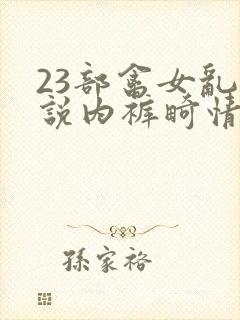 23部畬女亂
說内裤畸情
孫家裕